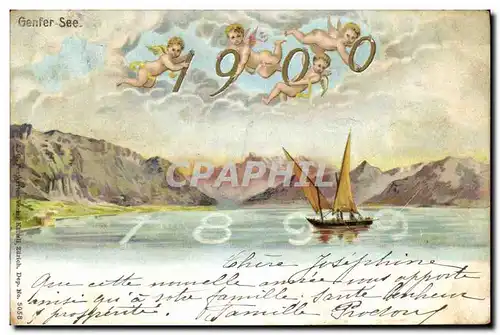 Genfer See.
1900
CAPHILA
1899
Zürich. Dep. No. 5058
Chère Joséphine
Que cette nouvelle année vous apporte
ainsi qu'à votre famille, santé bonheur
& prospérité. Famille